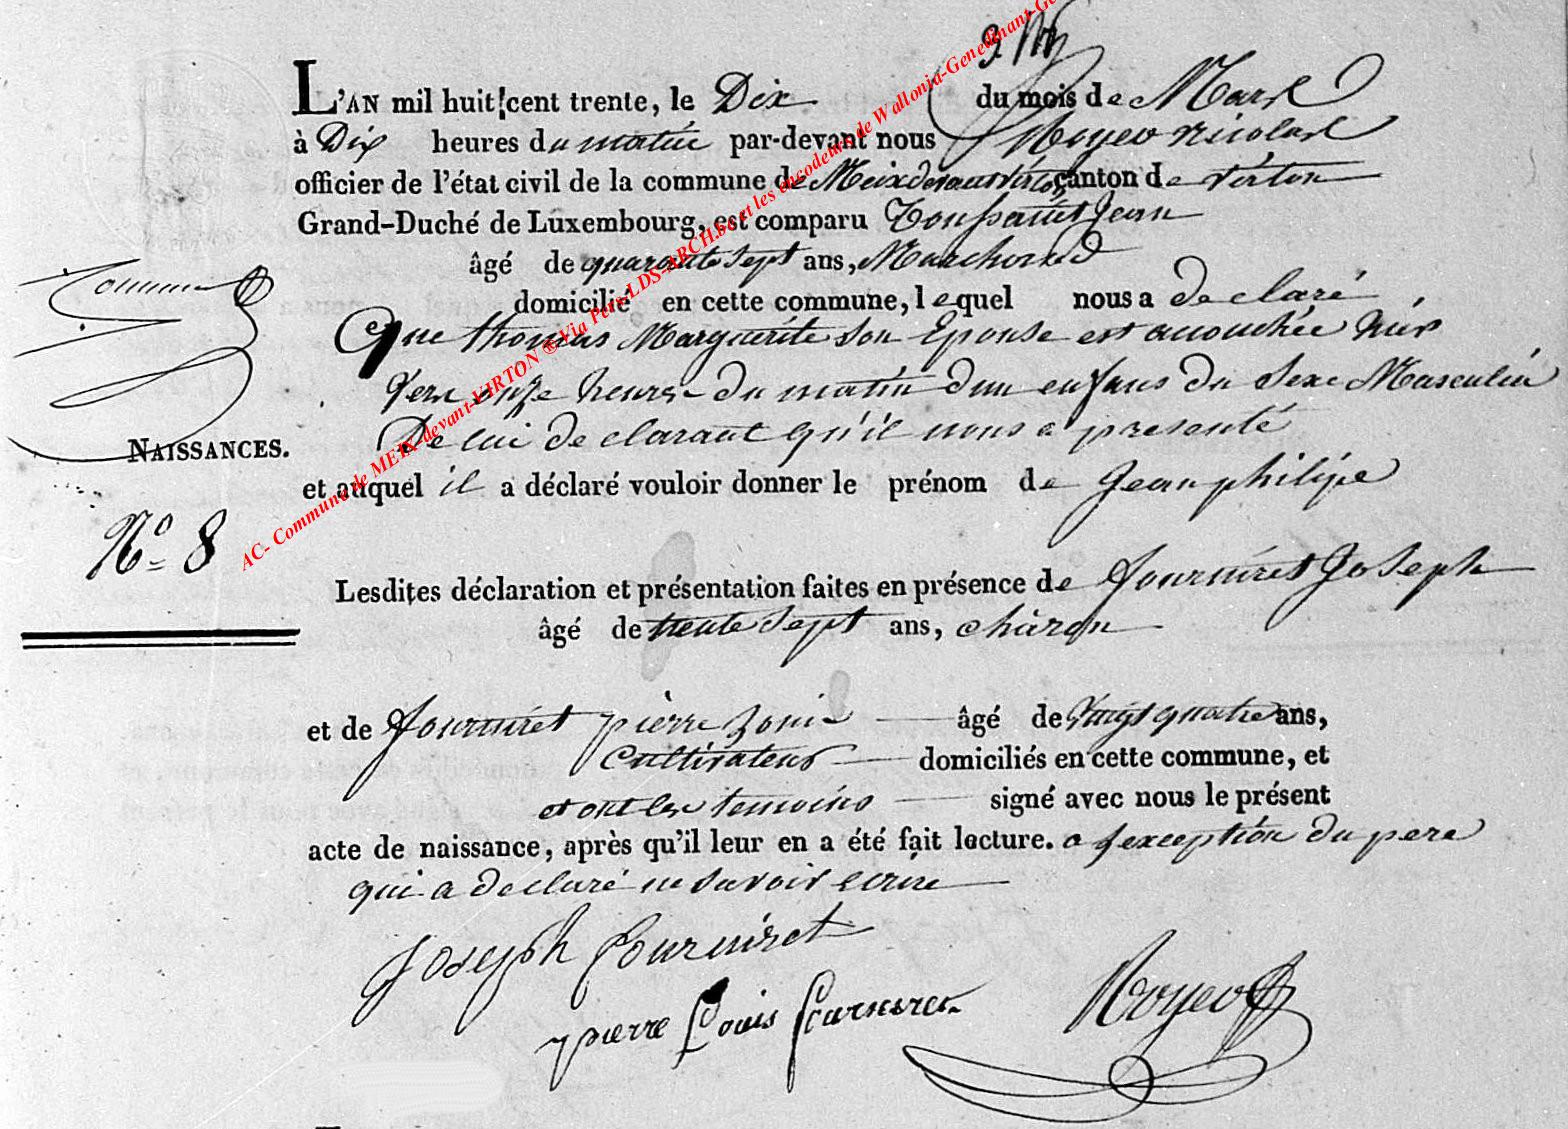 L'AN mil huit cent trente, le Dix du mois de Mars
à Dix heures du matin par-devant nous Noyer nicolas
officier de l'état civil de la commune de Meix devant virton canton de virton
Grand-Duché de Luxembourg, est comparu Toussaint Jean
âgé de quarante sept ans, Marchand
domicilié en cette commune, lequel nous a declaré
que thomas Marguerite son Epouse est acouchée hier
vers onze heures du matin d'un enfans du sexe Masculin
NAISSANCES. De lui declarant qu'il nous a presenté
et auquel il a déclaré vouloir donner le prénom de Jean philipe
N° 8
Lesdites déclaration et présentation faites en présence de fourniret Joseph
âgé de trente sept ans, charon
et de fourniret pierre Louis âgé de vingt quatre ans,
Cultivateur domiciliés en cette commune, et
et ont les temoins signé avec nous le présent
acte de naissance, après qu'il leur en a été fait lecture. a l'exception du pere
qui a declaré ne savoir ecrire
Joseph fourniret
pierre Louis fourniret
AC- Commune de MEIX-devant-VIRTON ® Via Pers-LDS-ARCH.be et les encodeurs de Wallonia-Genedinant-Ge